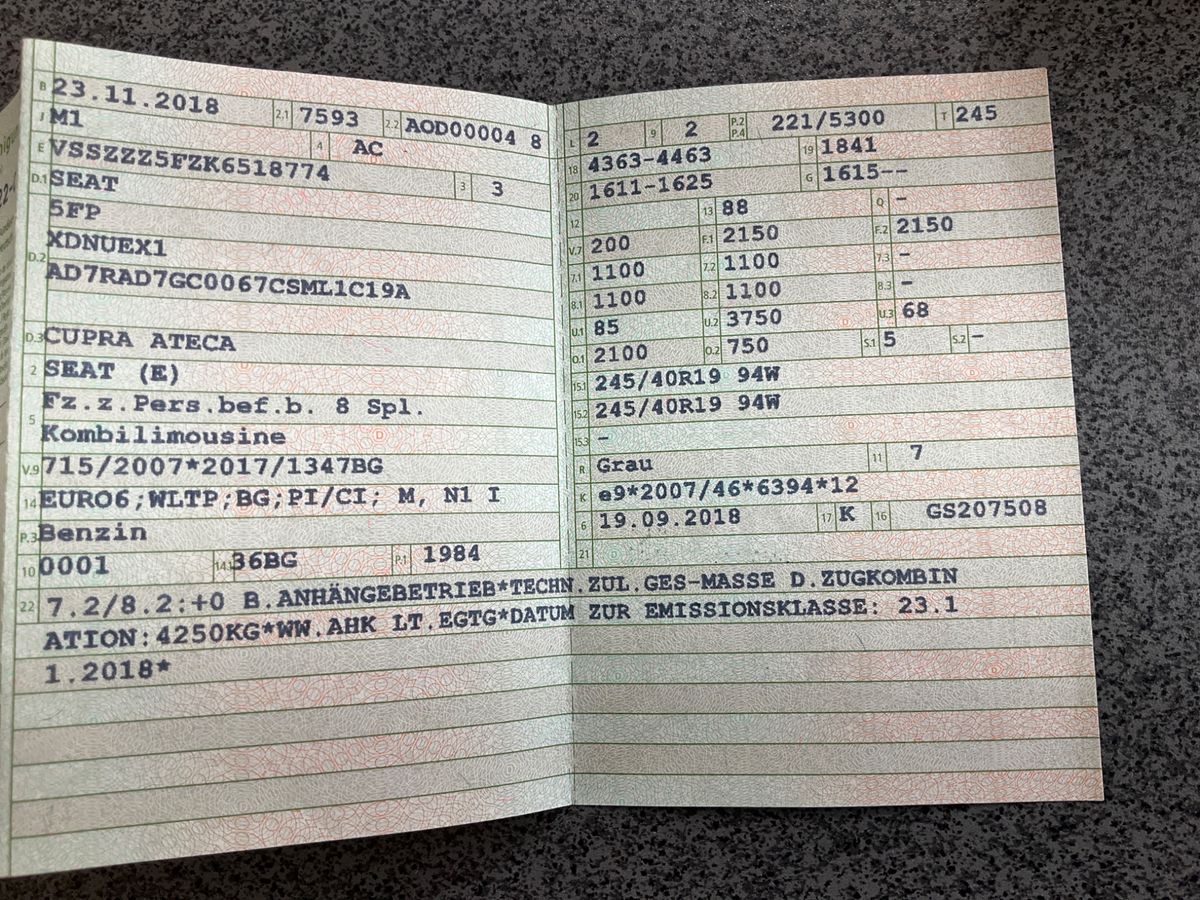 B 23.11.2018 2.1 7593 2.2 AOD00004 8
J M1 4 AC
E VSSZZZ5FZK6518774 3 3
D.1 SEAT
5FP
D.2 XDNUEX1
AD7RAD7GC0067CSML1C19A
D.3 CUPRA ATECA
2 SEAT (E)
5 Fz.z.Pers.bef.b. 8 Spl.
Kombilimousine
V.9 715/2007*2017/1347BG
14 EURO6;WLTP;BG;PI/CI; M, N1 I
P.3 Benzin
10 0001 14.1 36BG P.1 1984
L 2 9 2 P.2 P.4 221/5300 T 245
18 4363-4463 19 1841
20 1611-1625 G 1615--
12 13 88 Q -
V.7 200 F.1 2150 F.2 2150
7.1 1100 7.2 1100 7.3 -
8.1 1100 8.2 1100 8.3 -
U.1 85 U.2 3750 U.3 68
O.1 2100 O.2 750 S.1 5 S.2 -
15.1 245/40R19 94W
15.2 245/40R19 94W
15.3 -
R Grau 11 7
K e9*2007/46*6394*12
6 19.09.2018 17 K 16 GS207508
21
22 7.2/8.2:+0 B.ANHÄNGEBETRIEB*TECHN.ZUL.GES-MASSE D.ZUGKOMBIN
ATION:4250KG*WW.AHK LT.EGTG*DATUM ZUR EMISSIONSKLASSE: 23.1
1.2018*